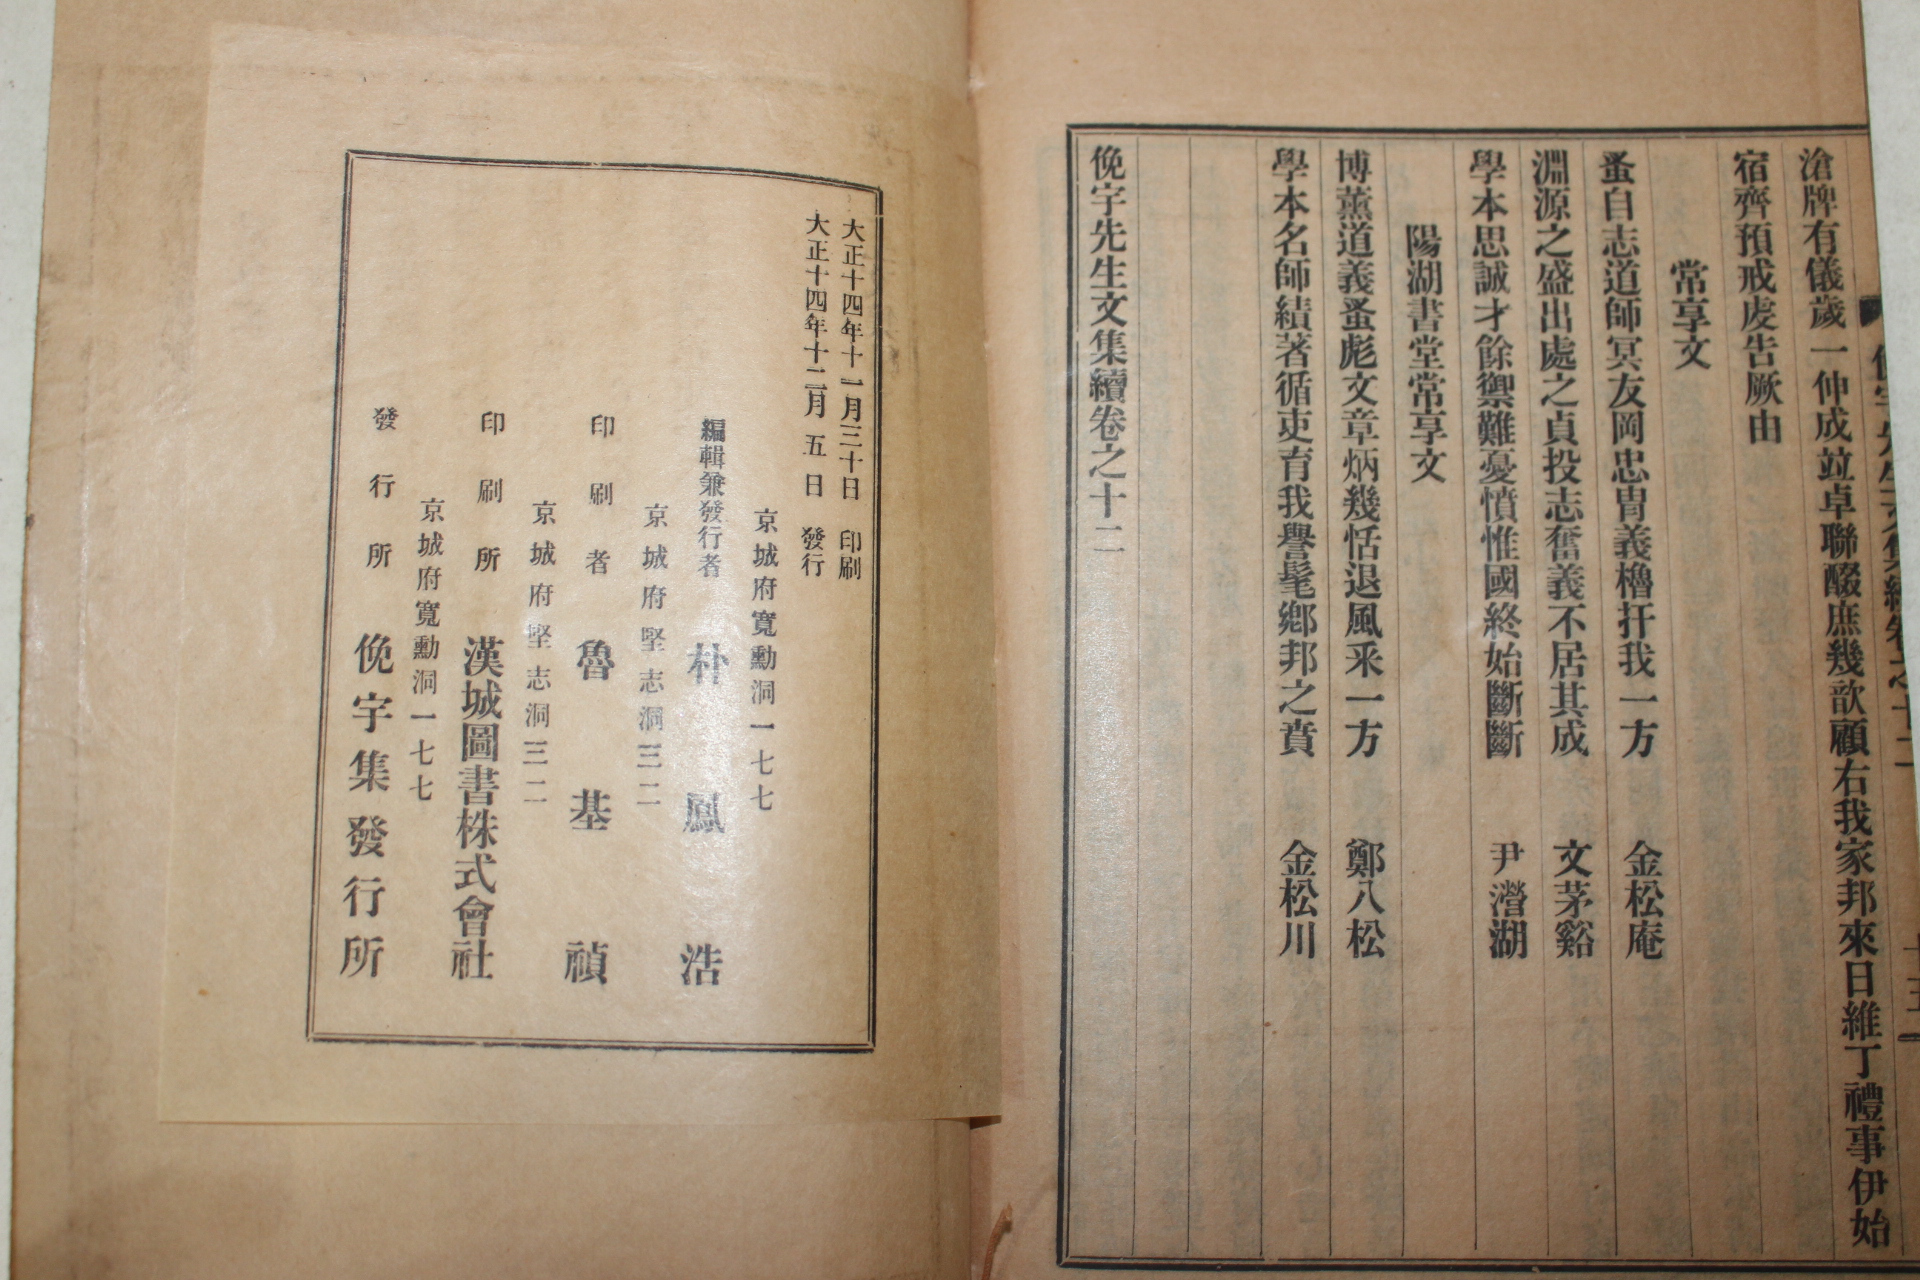 滄牌有儀歲一仲成竝卓聯醊庶幾歆顧右我家邦來日維丁禮事伊始
宿齊預戒虔告厥由
常享文
蚤自志道師冥友岡忠冑義櫓扞我一方 金松庵
淵源之盛出處之貞投志奮義不居其成 文茅谿
學本思誠才餘禦難憂憤惟國終始斷斷 尹澇湖
陽湖書堂常享文
博薰道義蚤彪文章炳幾恬退風采一方 鄭八松
學本名師績著循吏育我譽髦鄕邦之賁 金松川
俛宇先生文集續卷之十二
大正十四年十一月三十日 印刷
大正十四年十二月五日 發行
京城府寬勳洞一七七
編輯兼發行者 朴鳳浩
京城府堅志洞三二
印刷者 魯基禎
京城府堅志洞三二
印刷所 漢城圖書株式會社
京城府寬勳洞一七七
發行所 俛宇集發行所